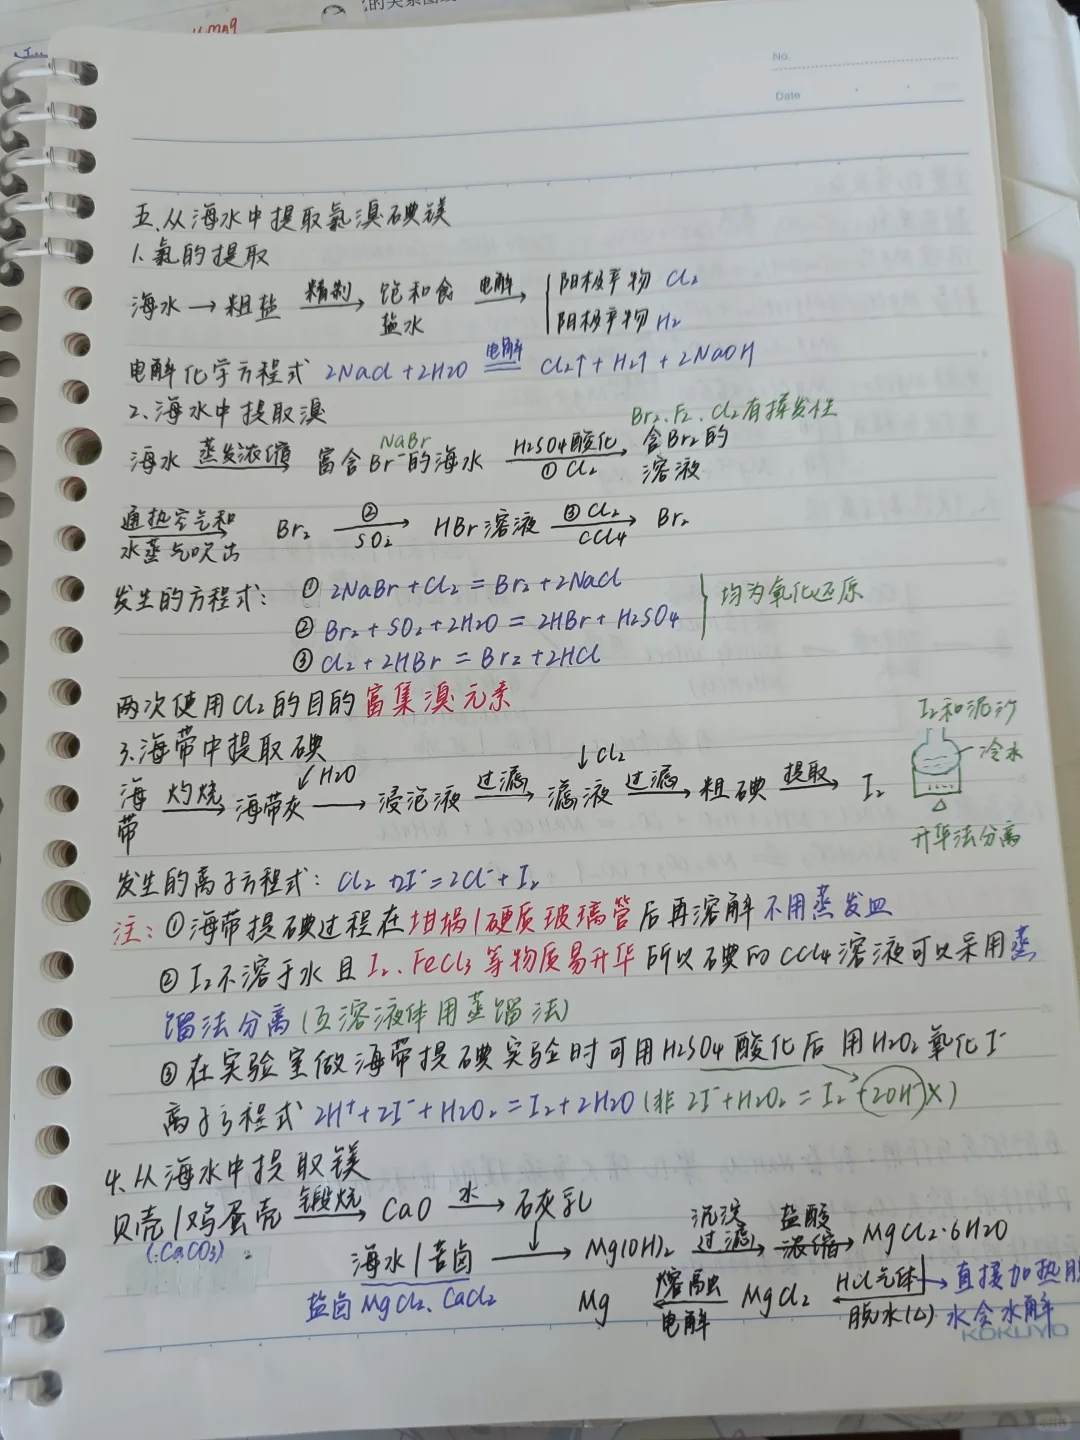 的关系图
No.
Date
五.从海水中提取氯溴碘镁
1.氯的提取
海水→粗盐 精制→ 饱和食盐水 电解→ 阳极产物 Cl2
阴极产物 H2
电解化学方程式 2NaCl+2H2O 电解== Cl2↑+H2↑+2NaOH
2、海水中提取溴
Br2、F2、Cl2有挥发性
海水 蒸发浓缩→ 富含Br⁻的海水 NaBr H2SO4酸化 ①Cl2→ 含Br2的溶液
通热空气和水蒸气吹出→ Br2 ②SO2→ HBr溶液 ③Cl2 CCl4→ Br2
发生的方程式: ① 2NaBr+Cl2=Br2+2NaCl
② Br2+SO2+2H2O=2HBr+H2SO4 均为氧化还原
③ Cl2+2HBr=Br2+2HCl
两次使用Cl2的目的富集溴元素
3.海带中提取碘
海带 灼烧→ 海带灰 ↙H2O → 浸泡液 过滤→ 滤液 ↓Cl2 过滤→ 粗碘 提取→ I2
I2和泥沙
冷水
升华法分离
发生的离子方程式: Cl2+2I⁻=2Cl⁻+I2
注:①海带提碘过程在坩埚/硬质玻璃管后再溶解不用蒸发皿
②I2不溶于水且I2、FeCl3等物质易升华所以碘的CCl4溶液可以采用蒸
馏法分离(互溶液体用蒸馏法)
③在实验室做海带提碘实验时可用H2SO4酸化后用H2O2氧化I⁻
离子方程式 2H⁺+2I⁻+H2O2=I2+2H2O(非2I⁻+H2O2=I2+2OH⁻X)
4.从海水中提取镁
贝壳/鸡蛋壳 煅烧→ CaO 水→ 石灰乳
(CaCO3)
海水/苦卤 → Mg(OH)2 沉淀过滤→ 盐酸浓缩→ MgCl2·6H2O
盐卤MgCl2、CaCl2
Mg ←熔融电解 MgCl2 ←HCl气体 脱水(△) →直接加热脱
水会水解
KOKUYO